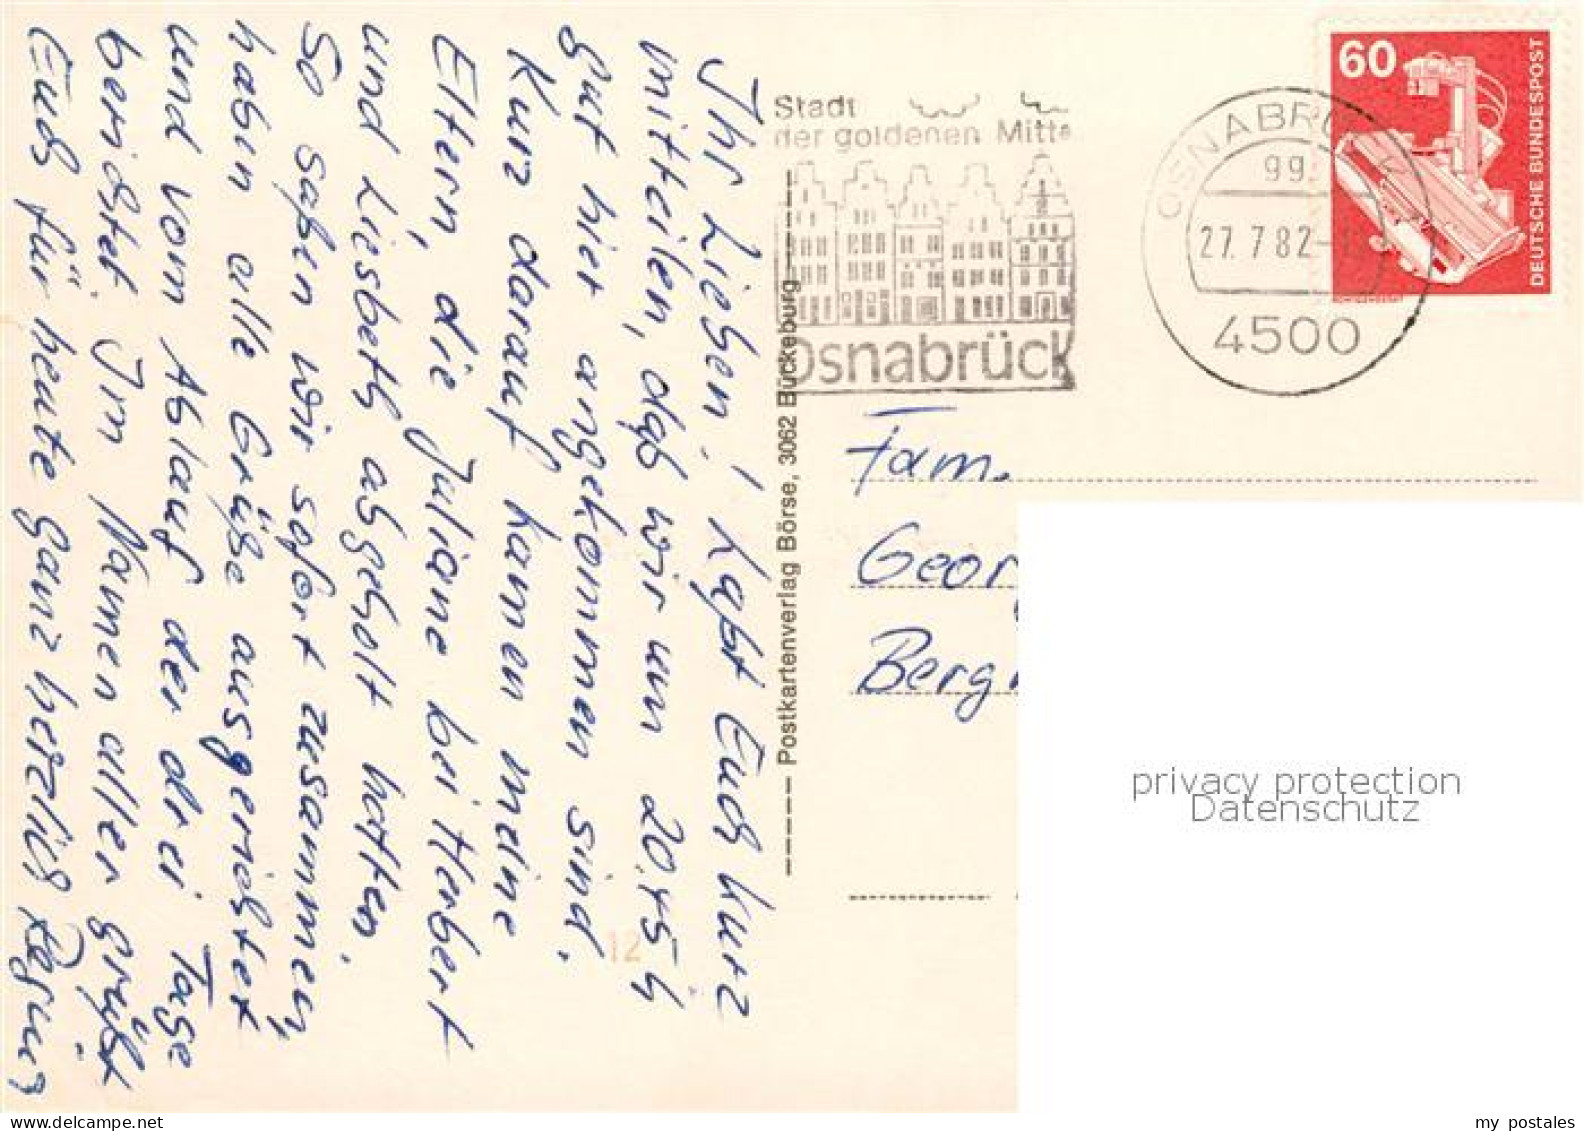 Ihr Lieben! Laßt Euch kurz
mitteilen, daß wir um 20.45 h
gut hier angekommen sind.
Kurz darauf kamen meine
Eltern, die Juliane bei Herbert
und Liesbeth abgeholt hatten.
So saßen wir sofort zusammen,
haben alle Grüße ausgerichtet
und vom Ablauf der drei Tage
berichtet. Im Namen aller grüßt
Euch für heute ganz herzlich
----- Postkartenverlag Börse, 3062 Bückeburg -----
Stadt
der goldenen Mitte
Osnabrück
OSNABRÜCK
99
27.7.82
4500
60
DEUTSCHE BUNDESPOST
Fam.
Georg
Berg
12
privacy protection
Datenschutz
delcampe.net
my postales